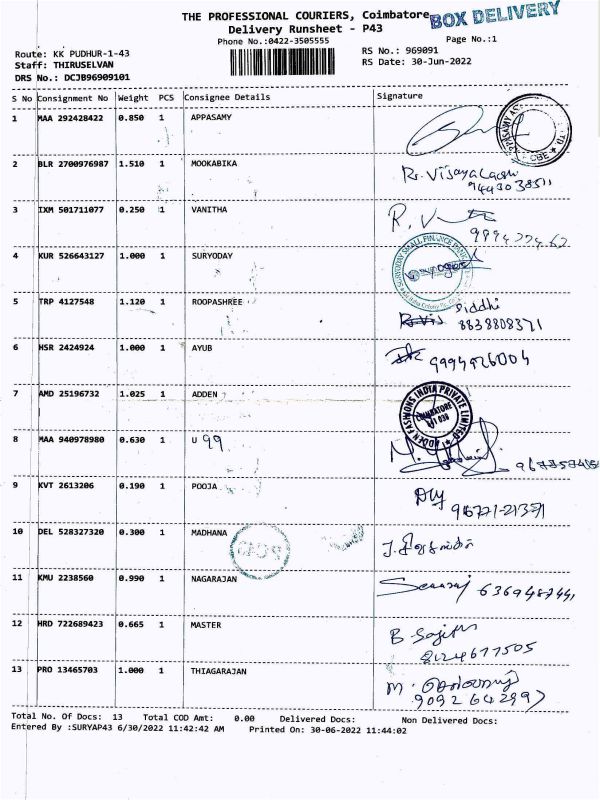 THE PROFESSIONAL COURIERS, Coimbatore
BOX DELIVERY
Delivery Runsheet - P43
Phone No.:0422-3505555
Page No.:1
Route: KK PUDHUR-1-43
RS No.: 969091
Staff: THIRUSELVAN
RS Date: 30-Jun-2022
DRS No.: DCJB96909101
S No Consignment No Weight PCS Consignee Details Signature
1 MAA 292428422 0.850 1 APPASAMY
2 BLR 2700976987 1.510 1 MOOKABIKA
3 IXM 501711077 0.250 1 VANITHA
4 KUR 526643127 1.000 1 SURYODAY
SURYODAY SMALL FINANCE BANK
5 TRP 4127548 1.120 1 ROOPASHREE Siddhi
8838808371
6 HSR 2424924 1.000 1 AYUB
9994926004
7 AMD 25196732 1.025 1 ADDEN
ADDEN FASHIONS INDIA PRIVATE LIMITED
COIMBATORE
8 MAA 940978980 0.630 1 U 99
9 KVT 2613206 0.190 1 POOJA
96771-21371
10 DEL 528327320 0.300 1 MADHANA
11 KMU 2238560 0.990 1 NAGARAJAN
12 HRD 722689423 0.665 1 MASTER
8124677505
13 PRO 13465703 1.000 1 THIAGARAJAN
9092642997
Total No. Of Docs: 13 Total COD Amt: 0.00 Delivered Docs: Non Delivered Docs:
Entered By :SURYAP43 6/30/2022 11:42:42 AM Printed On: 30-06-2022 11:44:02